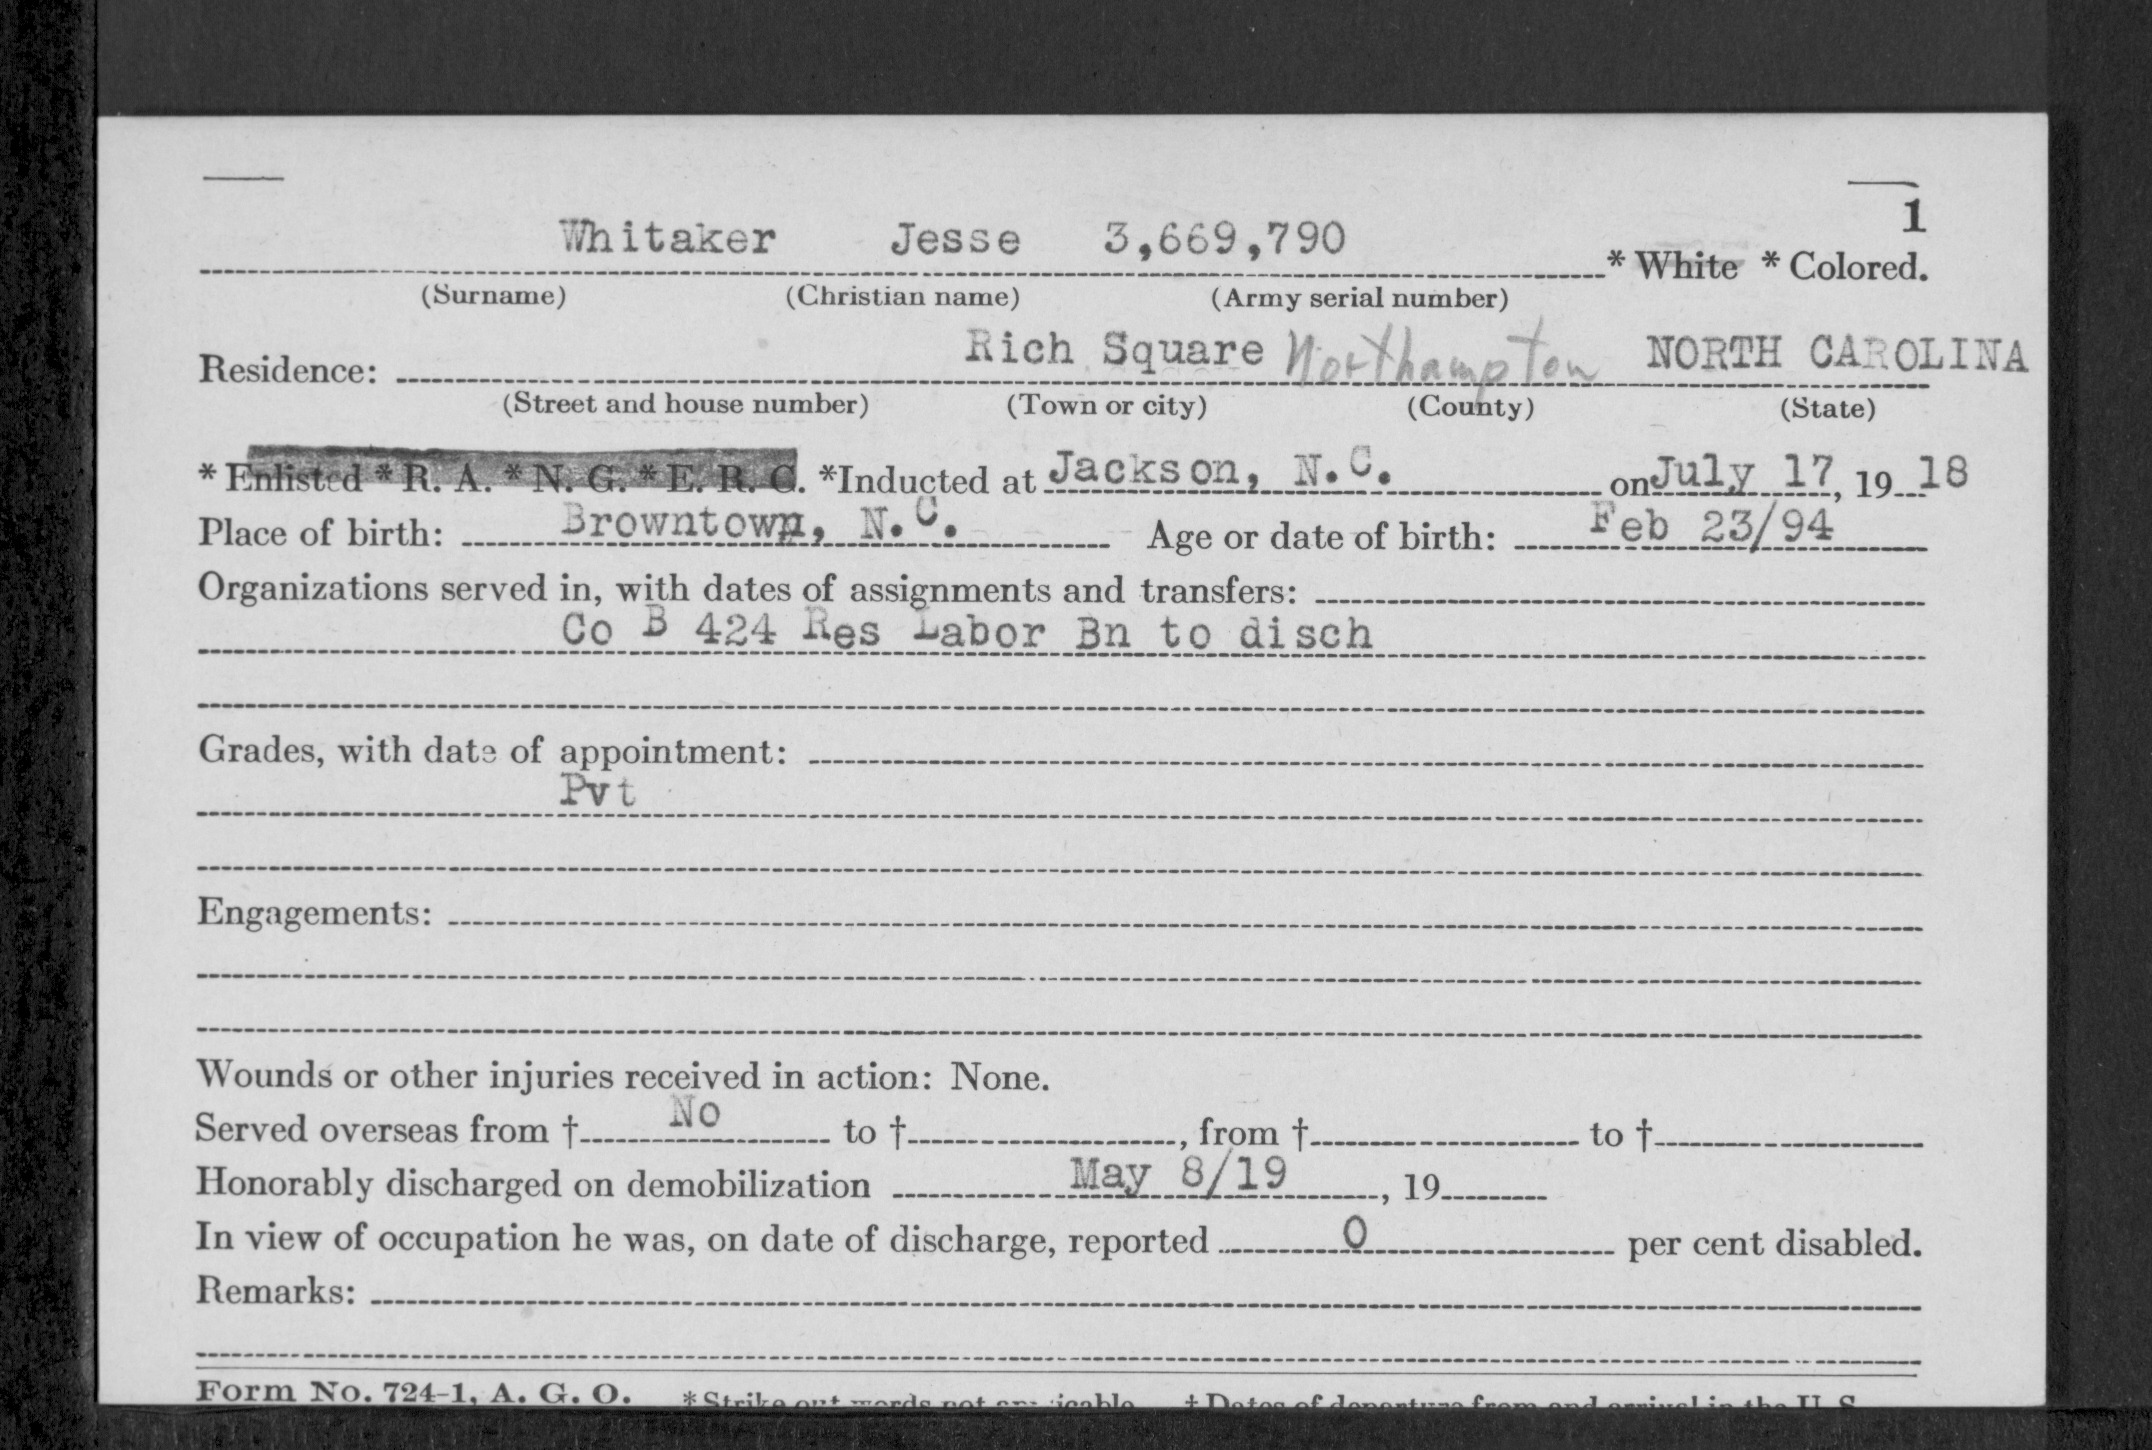 1
Whitaker Jesse 3,669,790 * White * Colored.
(Surname) (Christian name) (Army serial number)
Residence: Rich Square Northampton NORTH CAROLINA
(Street and house number) (Town or city) (County) (State)
* Enlisted * R. A. * N. G. * E. R. C. *Inducted at Jackson, N.C. on July 17, 19 18
Place of birth: Browntown, N.C. Age or date of birth: Feb 23/94
Organizations served in, with dates of assignments and transfers:
Co B 424 Res Labor Bn to disch
Grades, with date of appointment:
Pvt
Engagements:
Wounds or other injuries received in action: None.
Served overseas from † No to †, from † to †
Honorably discharged on demobilization May 8/19, 19
In view of occupation he was, on date of discharge, reported 0 per cent disabled.
Remarks:
Form No. 724-1, A. G. O. * Strike out words not applicable † Dates of departure from and arrival in the U S